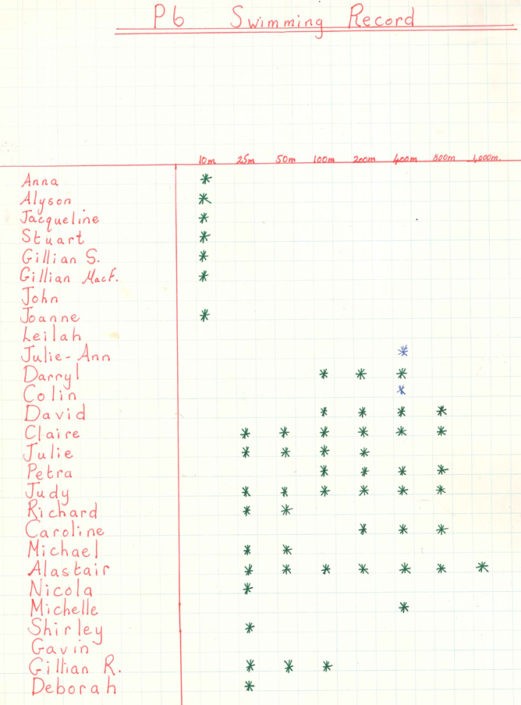 P6 Swimming Record
10m 25m 50m 100m 200m 400m 800m 1,000m.
Anna *
Alyson *
Jacqueline *
Stuart *
Gillian S. *
Gillian MacF. *
John
Joanne *
Leilah
Julie-Ann *
Darryl * * *
Colin *
David * * * *
Claire * * * * * *
Julie * * * *
Petra * * * *
Judy * * * * * *
Richard * *
Caroline * * *
Michael * *
Alastair * * * * * * *
Nicola *
Michelle *
Shirley *
Gavin
Gillian R. * * *
Deborah *